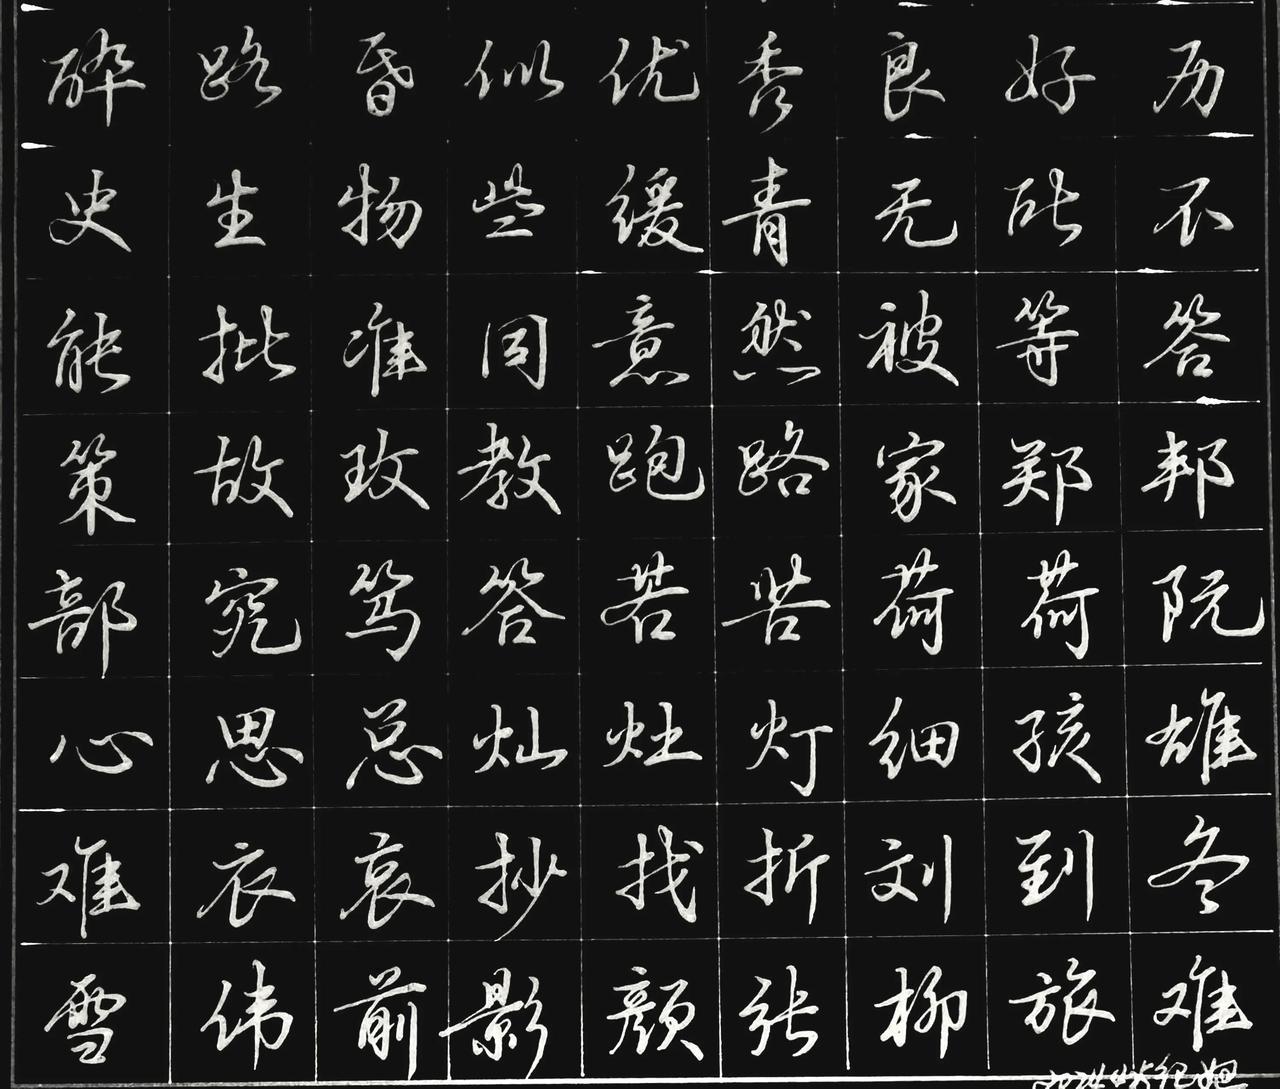 醉路昏似优秀良好历
史生物些缓青无此不
能批准同意然被等答
策故玫教跑路家郑邦
部窕笃答若苦荷荷阮
心思总灿灶灯细孩雄
难衣哀抄找折刘到冬
雪伟前影颜张柳旅难